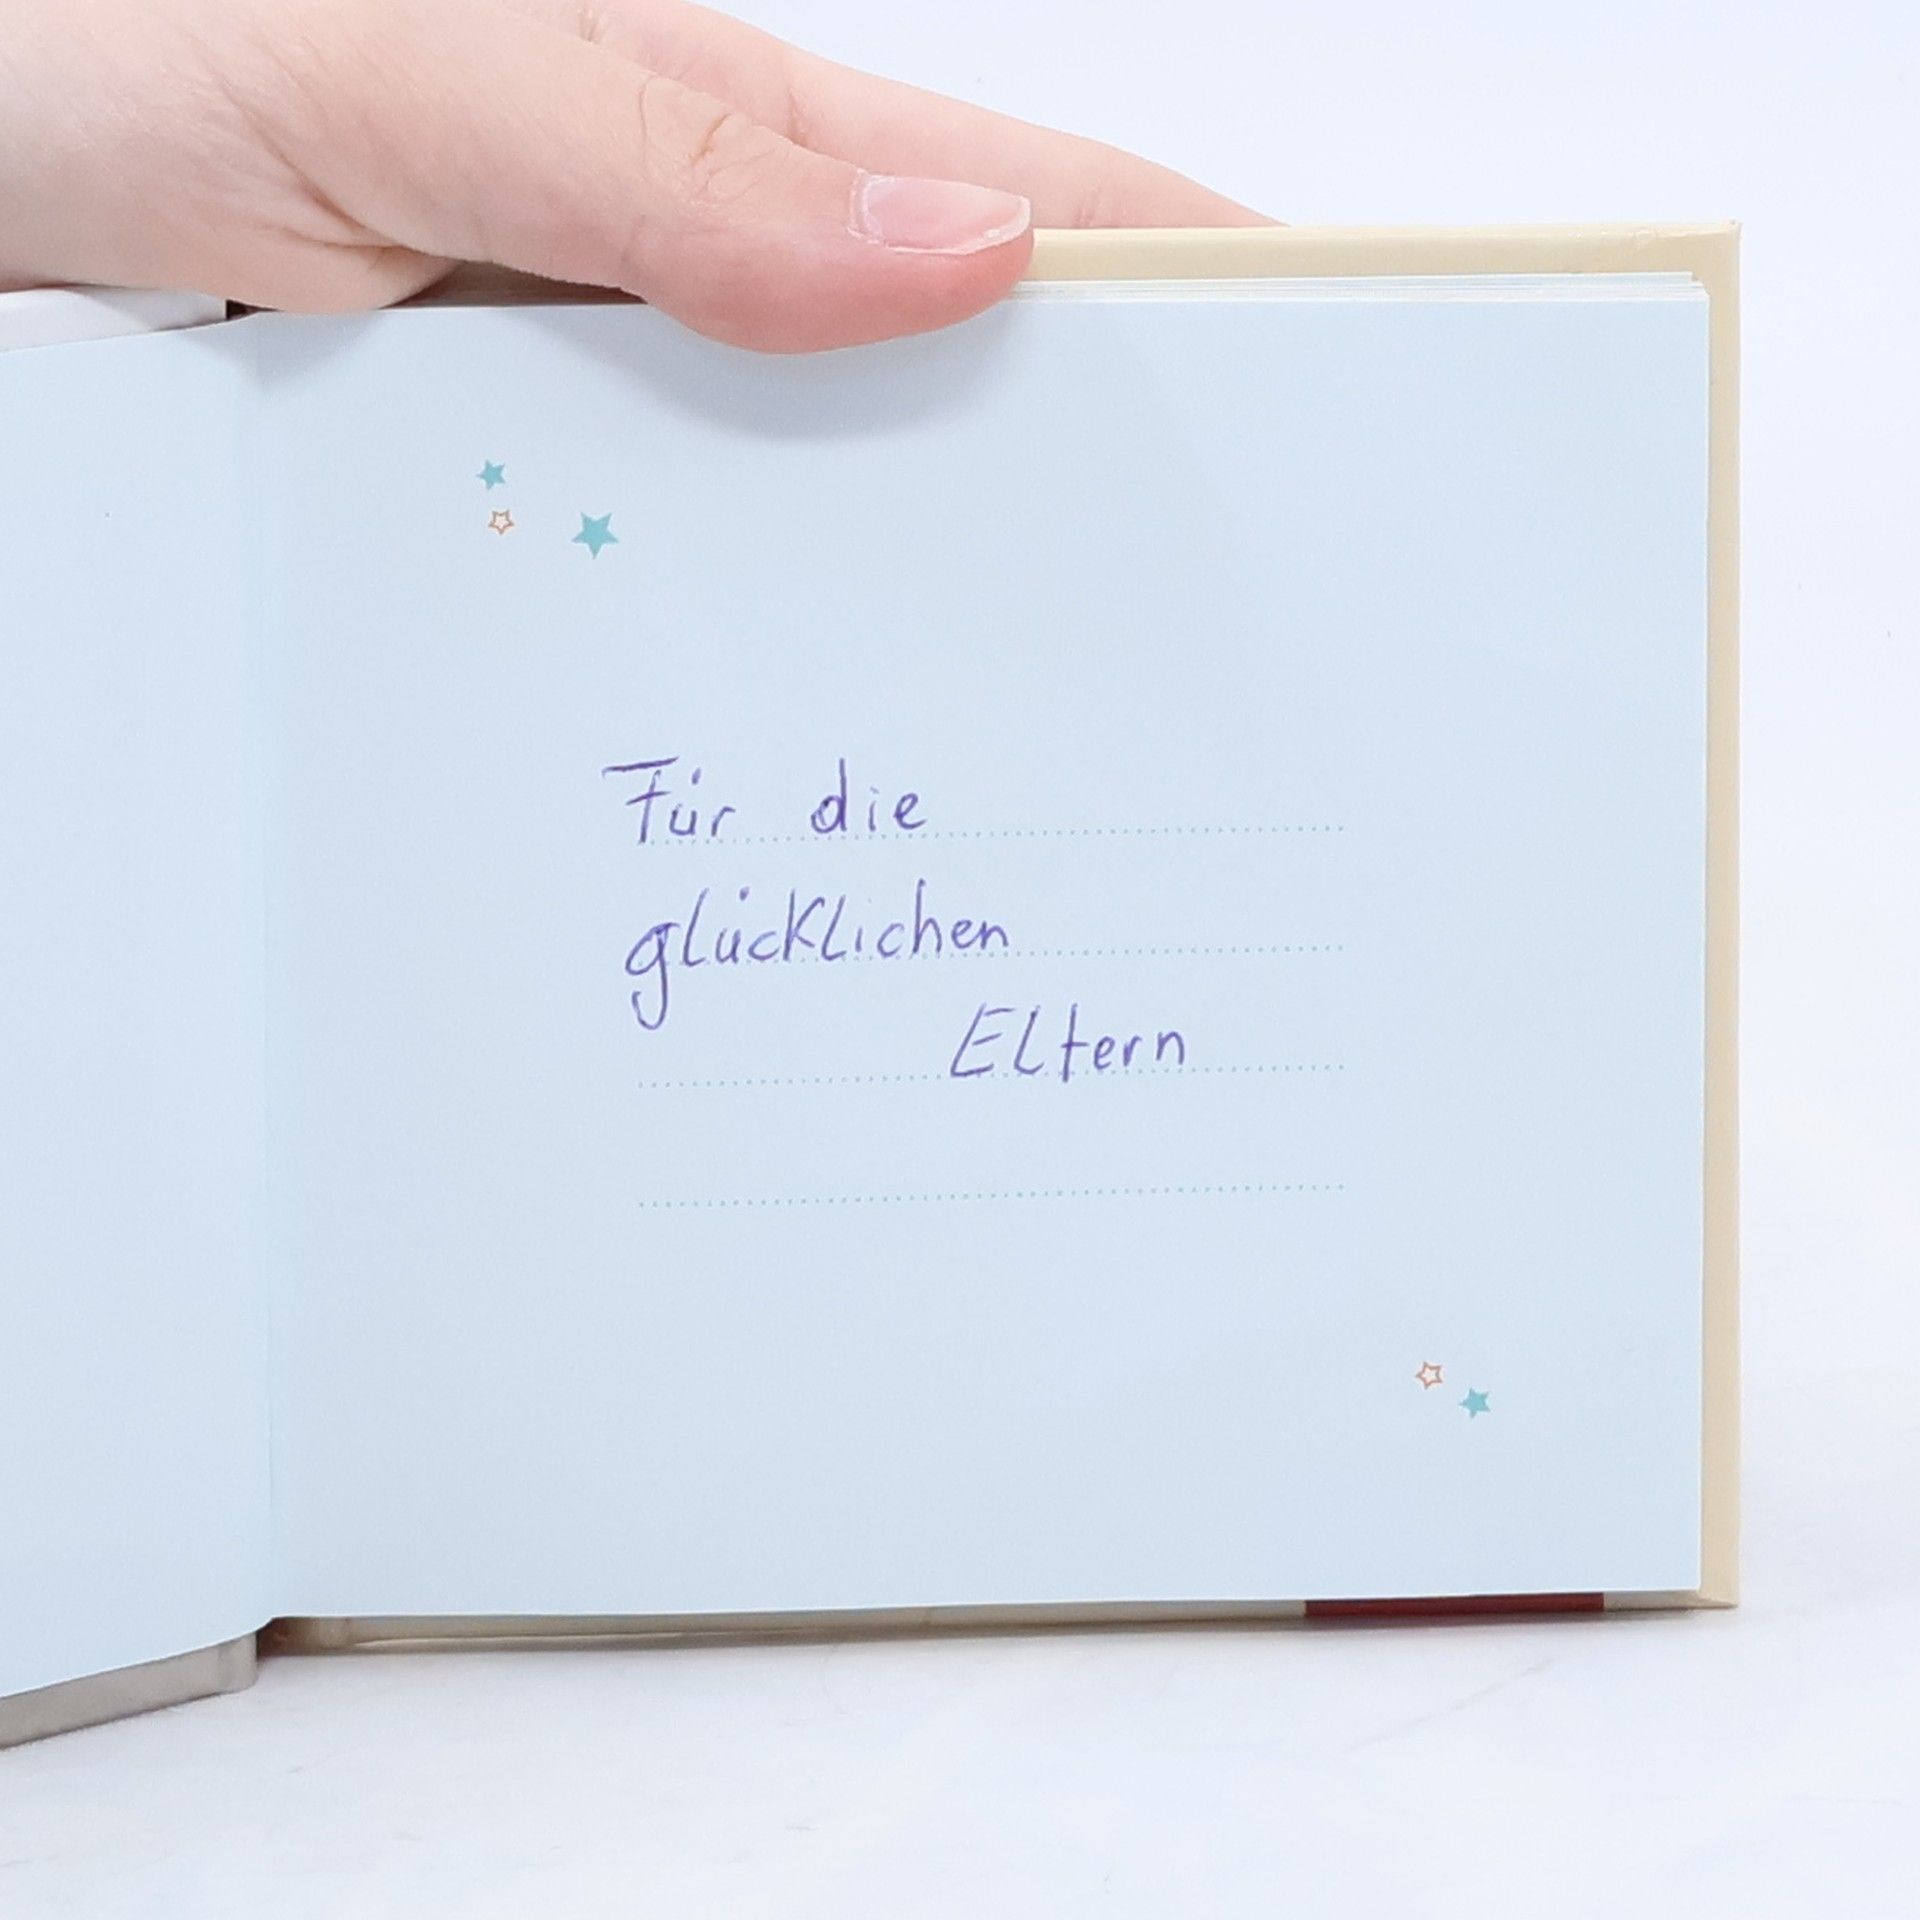 Für die
glücklichen
Eltern